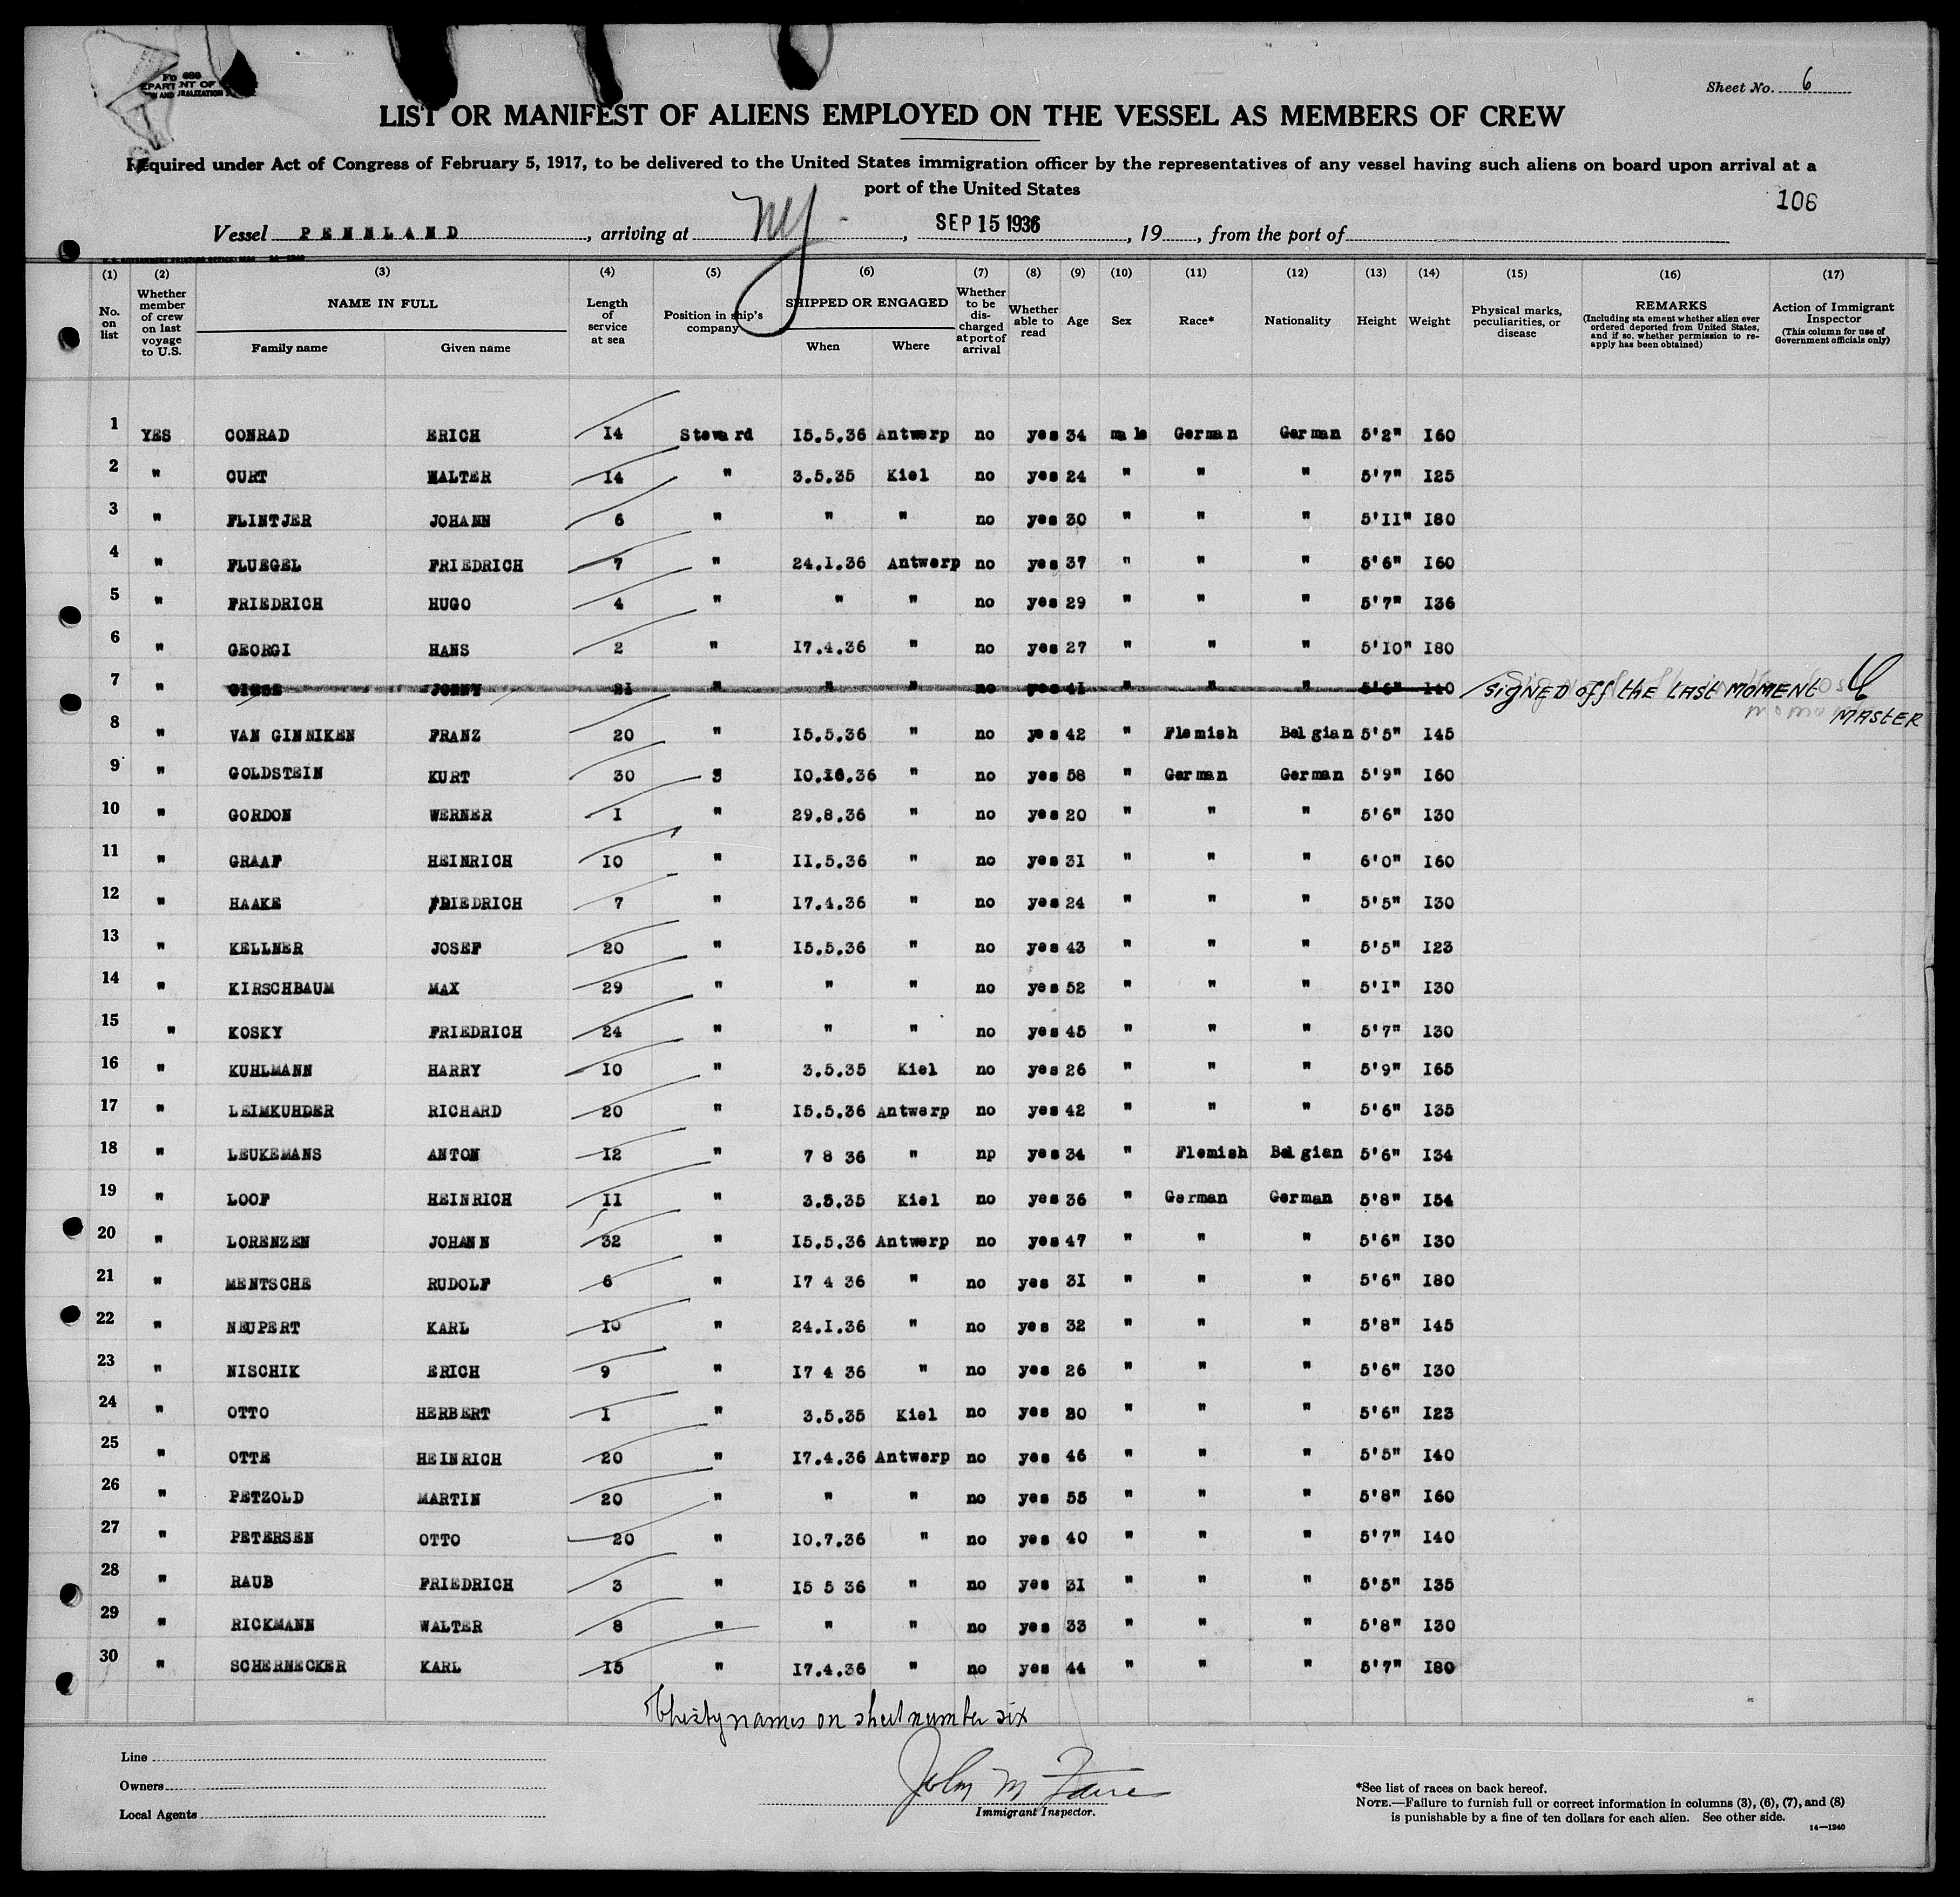 Sheet No. 6
LIST OR MANIFEST OF ALIENS EMPLOYED ON THE VESSEL AS MEMBERS OF CREW
Required under Act of Congress of February 5, 1917, to be delivered to the United States immigration officer by the representatives of any vessel having such aliens on board upon arrival at a
port of the United States
106
Vessel PENNLAND, arriving at NY, SEP 15 1936, 19, from the port of
(1) (2) (3) (4) (5) (6) (7) (8) (9) (10) (11) (12) (13) (14) (15) (16) (17)
No. on list
Whether member of crew on last voyage to U.S.
NAME IN FULL
Family name Given name
Length of service at sea
Position in ship's company
SHIPPED OR ENGAGED
When Where
Whether to be discharged at port of arrival
Whether able to read
Age
Sex
Race*
Nationality
Height
Weight
Physical marks, peculiarities, or disease
REMARKS
(Including sta ement whether alien ever ordered deported from United States, and if so, whether permission to re-apply has been obtained)
Action of Immigrant Inspector
(This column for use of Government officials only)
1 YES CONRAD ERICH 14 Steward 15.5.36 Antwerp no yes 34 male German German 5'2" 160
2 " CURT WALTER 14 " 3.5.35 Kiel no yes 24 " " " 5'7" 125
3 " FLINTJER JOHANN 6 " " " no yes 30 " " " 5'11" 180
4 " FLUEGEL FRIEDRICH 7 " 24.1.36 Antwerp no yes 37 " " " 5'6" 160
5 " FRIEDRICH HUGO 4 " " " no yes 29 " " " 5'7" 136
6 " GEORGI HANS 2 " 17.4.36 " no yes 27 " " " 5'10" 180
7 " JONNY 21 " " " no yes 41 " " " 5'6" 140 SIGNED OFF THE LAST MOMENT
MASTER
8 " VAN GINNIKEN FRANZ 20 15.5.36 " no yes 42 " Flemish Belgian 5'5" 145
9 " GOLDSTEIN KURT 30 " 10.36 " no yes 58 German German 5'9" 160
10 " GORDON WERNER 1 " 29.8.36 " no yes 20 " " " 5'6" 130
11 " GRAAF HEINRICH 10 " 11.5.36 " no yes 31 " " " 6'0" 160
12 " HAAKE FRIEDRICH 7 " 17.4.36 " no yes 24 " " " 5'5" 130
13 " KELLNER JOSEF 20 " 15.5.36 " no yes 43 " " " 5'5" 123
14 " KIRSCHBAUM MAX 29 " " " no yes 52 " " " 5'1" 130
15 " KOSKY FRIEDRICH 24 " " " no yes 45 " " " 5'7" 130
16 " KUHLMANN HARRY 10 " 3.5.35 Kiel no yes 26 " " " 5'9" 165
17 " LEIMKUHDER RICHARD 20 " 15.5.36 Antwerp no yes 42 " " " 5'6" 135
18 " LEUKEMANS ANTON 12 " 7 8 36 " np yes 34 " Flemish Belgian 5'6" 134
19 " LOOF HEINRICH 11 " 3.5.35 Kiel no yes 36 " German German 5'8" 154
20 " LORENZEN JOHANN 32 " 15.5.36 Antwerp no yes 47 " " " 5'6" 130
21 " MENTSCHE RUDOLF 6 " 17 4 36 " no yes 31 " " " 5'6" 180
22 " NEUPERT KARL 10 " 24.1.36 " no yes 32 " " " 5'8" 145
23 " NISCHIK ERICH 9 " 17 4 36 " no yes 26 " " " 5'6" 130
24 " OTTO HERBERT 1 " 3.5.35 Kiel no yes 20 " " " 5'6" 123
25 " OTTE HEINRICH 20 " 17.4.36 Antwerp no yes 46 " " " 5'5" 140
26 " PETZOLD MARTIN 20 " " " no yes 55 " " " 5'8" 160
27 " PETERSEN OTTO 20 " 10.7.36 " no yes 40 " " " 5'7" 140
28 " RAUB FRIEDRICH 3 " 15 5 36 " no yes 31 " " " 5'5" 135
29 " RICKMANN WALTER 8 " " " no yes 33 " " " 5'8" 130
30 " SCHERNECKER KARL 15 " 17.4.36 " no yes 44 " " " 5'7" 180
Thirty names on sheet number six
Line
Owners
Local Agents
John M
Immigrant Inspector.
*See list of races on back hereof.
NOTE.—Failure to furnish full or correct information in columns (3), (6), (7), and (8)
is punishable by a fine of ten dollars for each alien. See other side.
14—1240